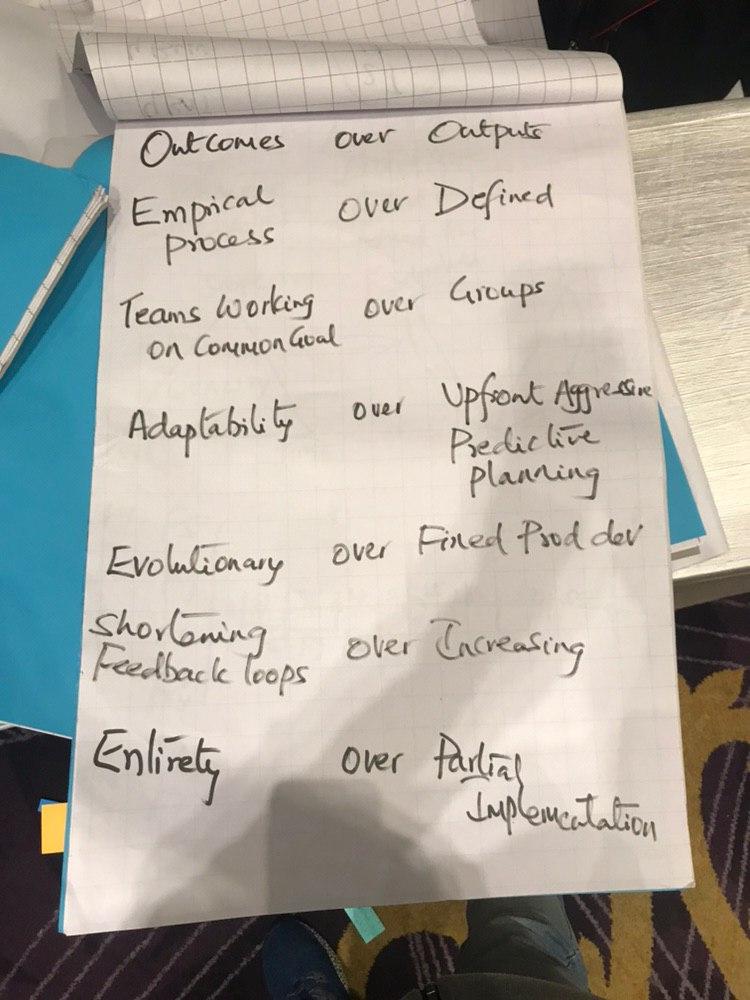 Outcomes over Outputs
Emprical over Defined
process
Teams Working over Groups
on Common Goal
Adaptability over Upfront Aggressive
Predictive
planning
Evolutionary over Fixed Prod dev
Shortening
Feedback loops over Increasing
Entirety over Partial
Implementation